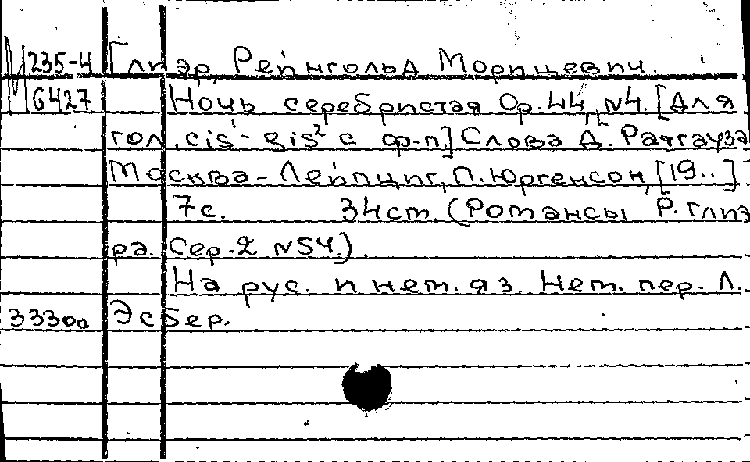 235-4 Глиэр, Рейнгольд Морицевич.
6427 Ночь серебристая Ор.44, N4. [Для
гол. cis¹-gis² с ф-п] Слова Д. Ратгауза
Москва-Лейпциг, П. Юргенсон, [19..]
7с. 34см. (Романсы Р. Глиэ
ра. Сер. 2 N54.)
На рус. и нем. яз. Нем. пер. Л.
33300 Эсбер.